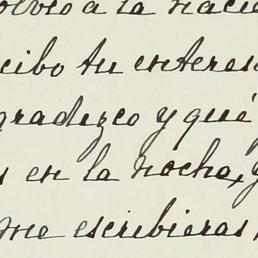 olvió a la naci
cibo tu enteres
gradezco y qué
s en la nocha, y
me escribieras